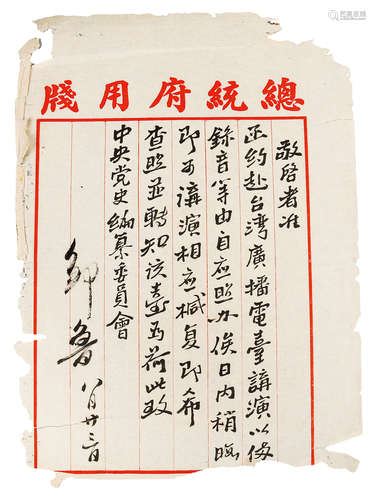 總統府用牋
敬啓者准
函約赴台湾廣播電臺講演以俻
錄音等由自應照办俟日内稍暇
即可講演相應椷复即希
查照並轉知该臺為荷此致
中央党史编纂委員會
邹魯 八月廿三日